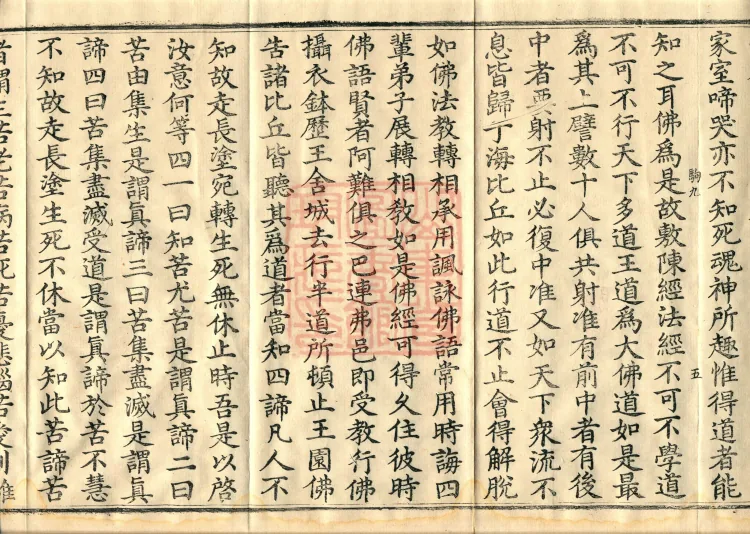 家室啼哭亦不知死魂神所趣惟得道者能
胸九
五
知之耳佛為是故敷陳經法經不可不學道
不可不行天下多道王道為大佛道如是最
為其上譬數十人俱共射准有前中者有後
中者要射不止必復中准又如天下衆流不
息皆歸于海比丘如此行道不止會得解脫
如佛法教轉相承用諷詠佛語常用時誨四
輩弟子展轉相教如是佛經可得久住彼時
佛語賢者阿難俱之巴連弗邑即受教行佛
攝衣鉢歷王舍城去行半道所頓止王園佛
告諸比丘皆聽其為道者當知四諦凡人不
知故走長塗宛轉生死無休止時吾是以啓
汝意何等四一曰知苦尤苦是謂真諦二曰
苦由集生是謂真諦三曰苦集盡滅是謂真
諦四曰苦集盡滅受道是謂真諦於苦不慧
不知故走長塗生死不休當以知此苦諦苦
者謂生苦老苦病苦死苦憂悲惱苦愛別離